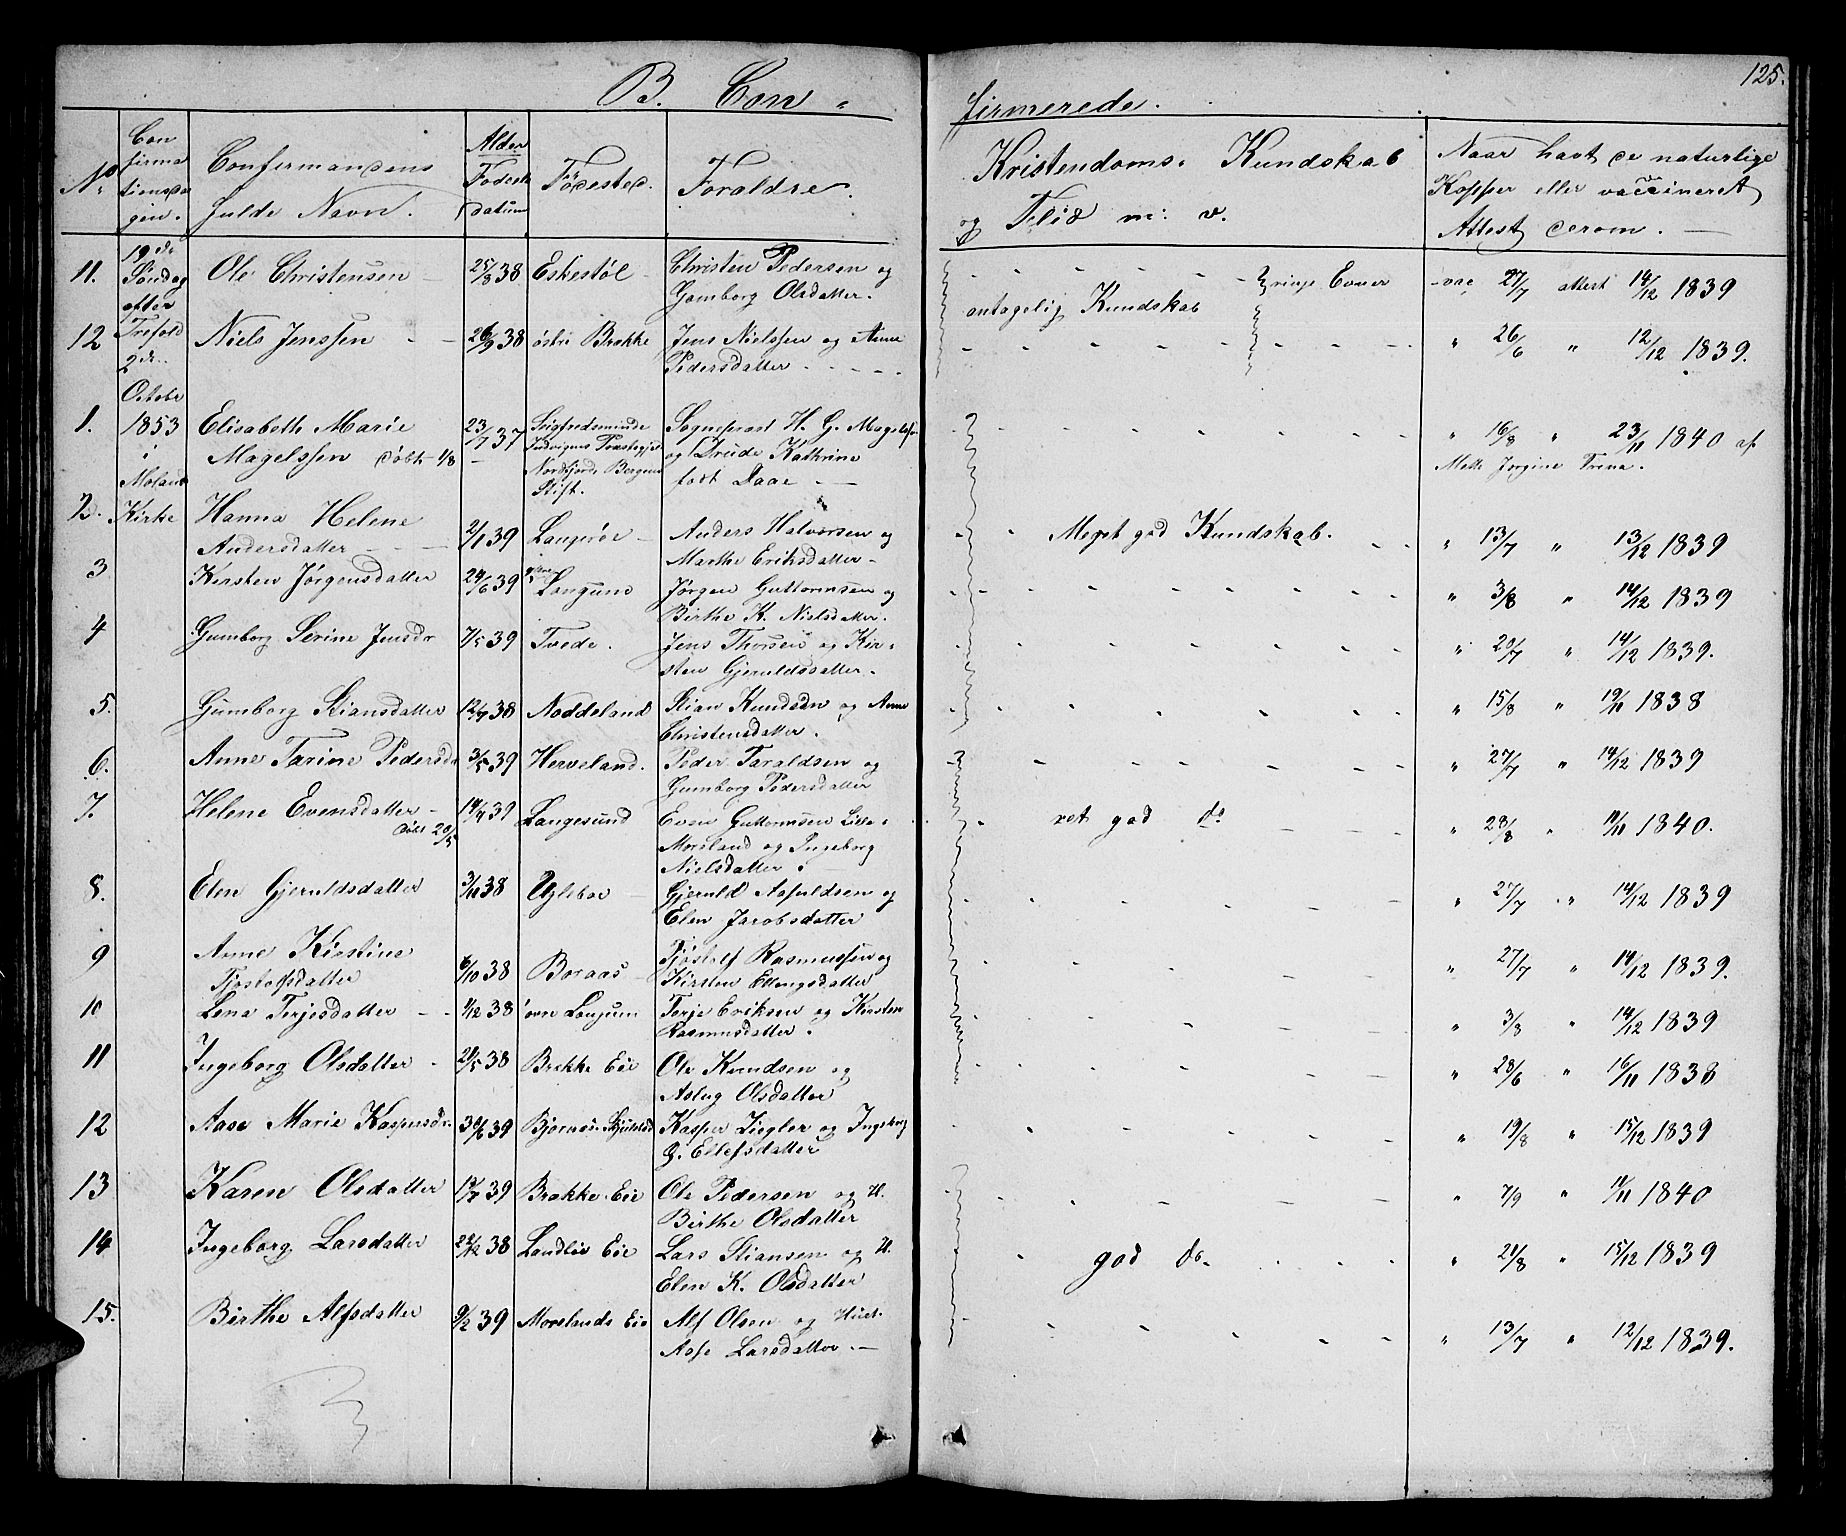 125.
B. Con-
firmerede.
No
Confirmationsdagen.
Confirmandens
fulde Navn.
Alder
Fødsels
datum
Fødested.
Forældre.
Kristendoms. Kundskab
og Flid m: v.
Naar havt de naturlige
Kopper eller vaccineret
Attest derom. —
11. 19de Søndag efter Trefold 2de Octobr 1853 i Moland Kirke
Ole Christensen 25/8 38 Eskestøl Christen Pedersen og
Gomborg Olsdatter.
antagelig Kundskab ringe Evner vac 27/7 attest 14/12 1839
12 Niels Jenssen 26/9 38 østre Brække Jens Nielsen og Anne
Pedersdatter " 26/6 " 12/12 1839.
1. Elisabeth Marie 23/7 37 Sogneprest H. G. Magelsen
Magelssen døbt 1/8 og Drude Kathrine
Nordfjord Bergens
Stift. født Daae. " 16/8 " 23/11 1840 af
Mette Jørgine Trena.
2. Hanna Helene
Andersdatter 2/1 39 Langrøe Anders Halvorsen og
Marthe Eriksdatter Meget god Kundskab. " 13/7 " 13/12 1839
3 Kirsten Jørgensdatter 24/6 39 Langsund Jørgen Guttormsen og
Birthe K. Nielsdatter. " 3/8 " 14/12 1839
4 Gumborg Serine Jensdr 7/5 39 Tvede. Jens Thorsen og Kir-
sten Gjeruldsdatter. " 20/7 " 14/12 1839.
5. Gumborg Stiansdatter 12/7 38 Noddeland Stian Knudsen og Anne
Christensdatter. " 15/8 " 19/11 1838
6. Anne Tarine Pedersdr 3/5 39 Herveland. Peder Taraldsen og
Gumborg Pedersdatter " 27/7 " 14/12 1839
7. Helene Evensdatter 14/4 39 Langesund Even Guttormsen Lille-
døbt 20/5 Moreland og Ingeborg
Nielsdatter. ret god do " 28/8 " 11/11 1840.
8. Elen Gjeruldsdatter 3/10 38 Ugleboe Gjeruld Aasuldsen og
Elen Jacobsdatter " 27/7 " 14/12 1839
9 Anne Kirstine
Tjostolfsdatter 6/10 38 Boraas Tjøstolf Rasmussen og
Kirsten Ellingsdatter " 27/7 " 14/12 1839.
10 Lena Terjesdatter 1/12 38 øvre Langsum Terje Eriksen og Kirsten
Rasmusdatter. " 3/8 " 14/12 1839
11 Ingeborg Olsdatter 21/5 38 Brække Eie Ole Knudsen og
Aslug Olsdatter " 28/6 " 16/11 1838
12 Aase Marie Kaspersdr. 30/6 39 Bjornøs Kasper Ziegler og Ingeborg
G. Ellefsdatter " 19/8 " 15/12 1839
13 Karen Olsdatter 39 Brække Eie Ole Pedersen og H.
Birthe Olsdatter " 7/9 " 11/11 1840
14 Ingeborg Larsdatter 28/12 38 Landløv Eie Lars Stiansen og H.
Elen K. Olsdatter god do. " 21/8 " 15/12 1839
15. Birthe Alfsdatter 9/2 39 Morelands Eie Alf Olsen og Hust.
Aase Larsdatter. " 13/7 " 12/12 1839.